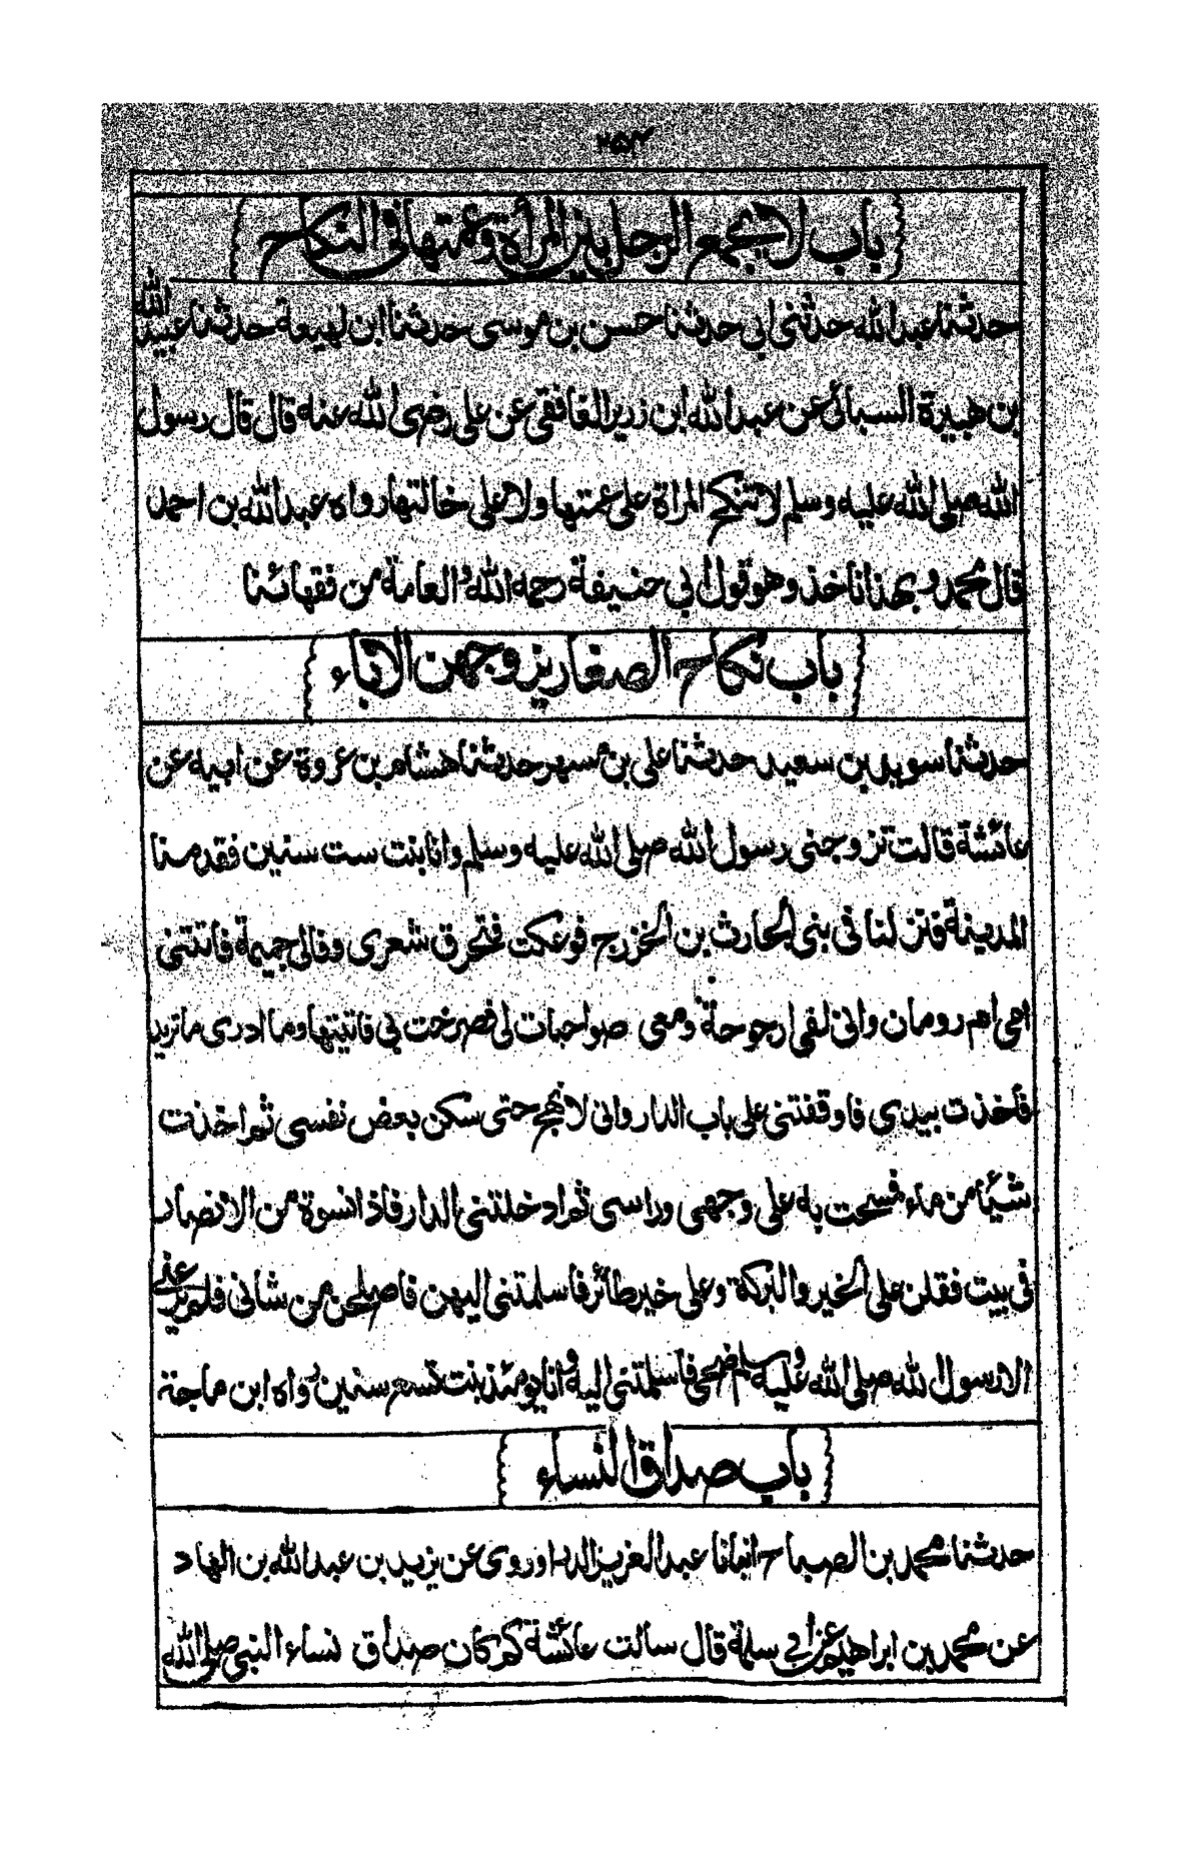 ۲۵۲
باب لا يجمع الرجل بين المرأة وعمتها في النكاح
حدثنا عبدالله حدثني ابي حدثنا حسن بن موسى حدثنا ابن لهيعة حدثنا عبيدالله
بن هبيرة السبائي عن عبدالله ابن زرير الغافقي عن علي رضى الله عنه قال قال رسول
الله صلى الله عليه وسلم لا تنكح المراة على عمتها ولا على خالتها رواه عبدالله بن احمد
قال محمد وبهذا ناخذ وهو قول ابي حنيفة رحمه الله والعامة من فقهائنا
باب نكاح الصغار يزوجهن الاباء
حدثنا سويد بن سعيد حدثنا على بن مسهر حدثنا هشام بن عروة عن ابيه عن
عائشة قالت تزوجنى رسول الله صلى الله عليه وسلم وانا بنت ست سنين فقدمنا
المدينة فنزلنا فى بنى الحارث بن الخزرج فوعكت فتمرق شعرى وفالى جميمة فاتتنى
امى ام رومان وانى لفى ارجوحة ومعى صواحبات لى فصرخت بي فاتيتها وما ادرى ما تريد
فاخذت بيدى فاوقفتنى على باب الدار وانى لانهج حتى سكن بعض نفسى ثم اخذت
شيئا من ماء فمسحت به على وجهى وراسى ثم ادخلتنى الدار فاذا نسوة من الانصار
فى بيت فقلن على الخير والبركة وعلى خير طائر فاسلمتنى اليهن فاصلحن من شانى فلم يرعنى
الا رسول الله صلى الله عليه وسلم ضحى فاسلمتنى اليه وانا يومئذ بنت تسع سنين رواه ابن ماجة
باب صداق النساء
حدثنا محمد بن الصباح انبانا عبد العزيز الدراوروى عن يزيد بن عبدالله بن الهاد
عن محمد بن ابراهيم عن ابي سلمة قال سالت عائشة كم كان صداق نساء النبى صلى الله